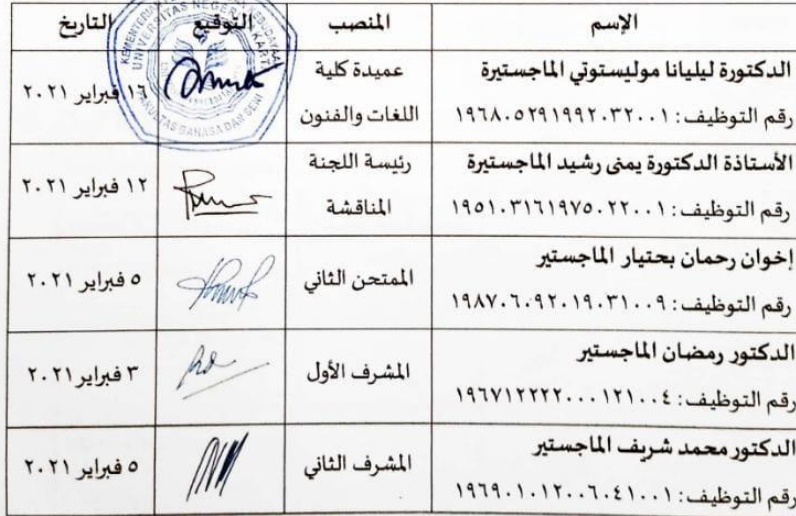 الإسم المنصب التوقيع التاريخ
الدكتورة ليليانا موليستوتي الماجستيرة
رقم التوظيف: ١٩٦٨٠٥٢٩١٩٩٢٠٣٢٠٠١
عميدة كلية
اللغات والفنون
١٦ فبراير ٢٠٢١
الأستاذة الدكتورة يمنى رشيد الماجستيرة
رقم التوظيف: ١٩٥١٠٣١٦١٩٧٥٠٢٢٠٠١
رئيسة اللجنة
المناقشة
١٢ فبراير ٢٠٢١
إخوان رحمان بحتيار الماجستير
رقم التوظيف: ١٩٨٧٠٦٠٩٢٠١٩٠٣١٠٠٩
الممتحن الثاني
٥ فبراير ٢٠٢١
الدكتور رمضان الماجستير
رقم التوظيف: ١٩٦٧١٢٢٢٢٠٠٠١٢١٠٠٤
المشرف الأول
٣ فبراير ٢٠٢١
الدكتور محمد شريف الماجستير
رقم التوظيف: ١٩٦٩٠١٠١٢٠٠٦٠٤١٠٠١
المشرف الثاني
٥ فبراير ٢٠٢١
UNIVERSITAS NEGERI
FAKULTAS BAHASA DAN SENI